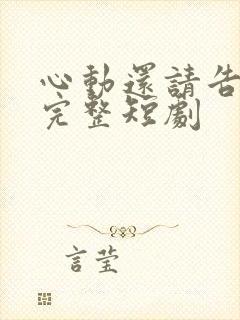 心動還請告
完整短劇
言莹